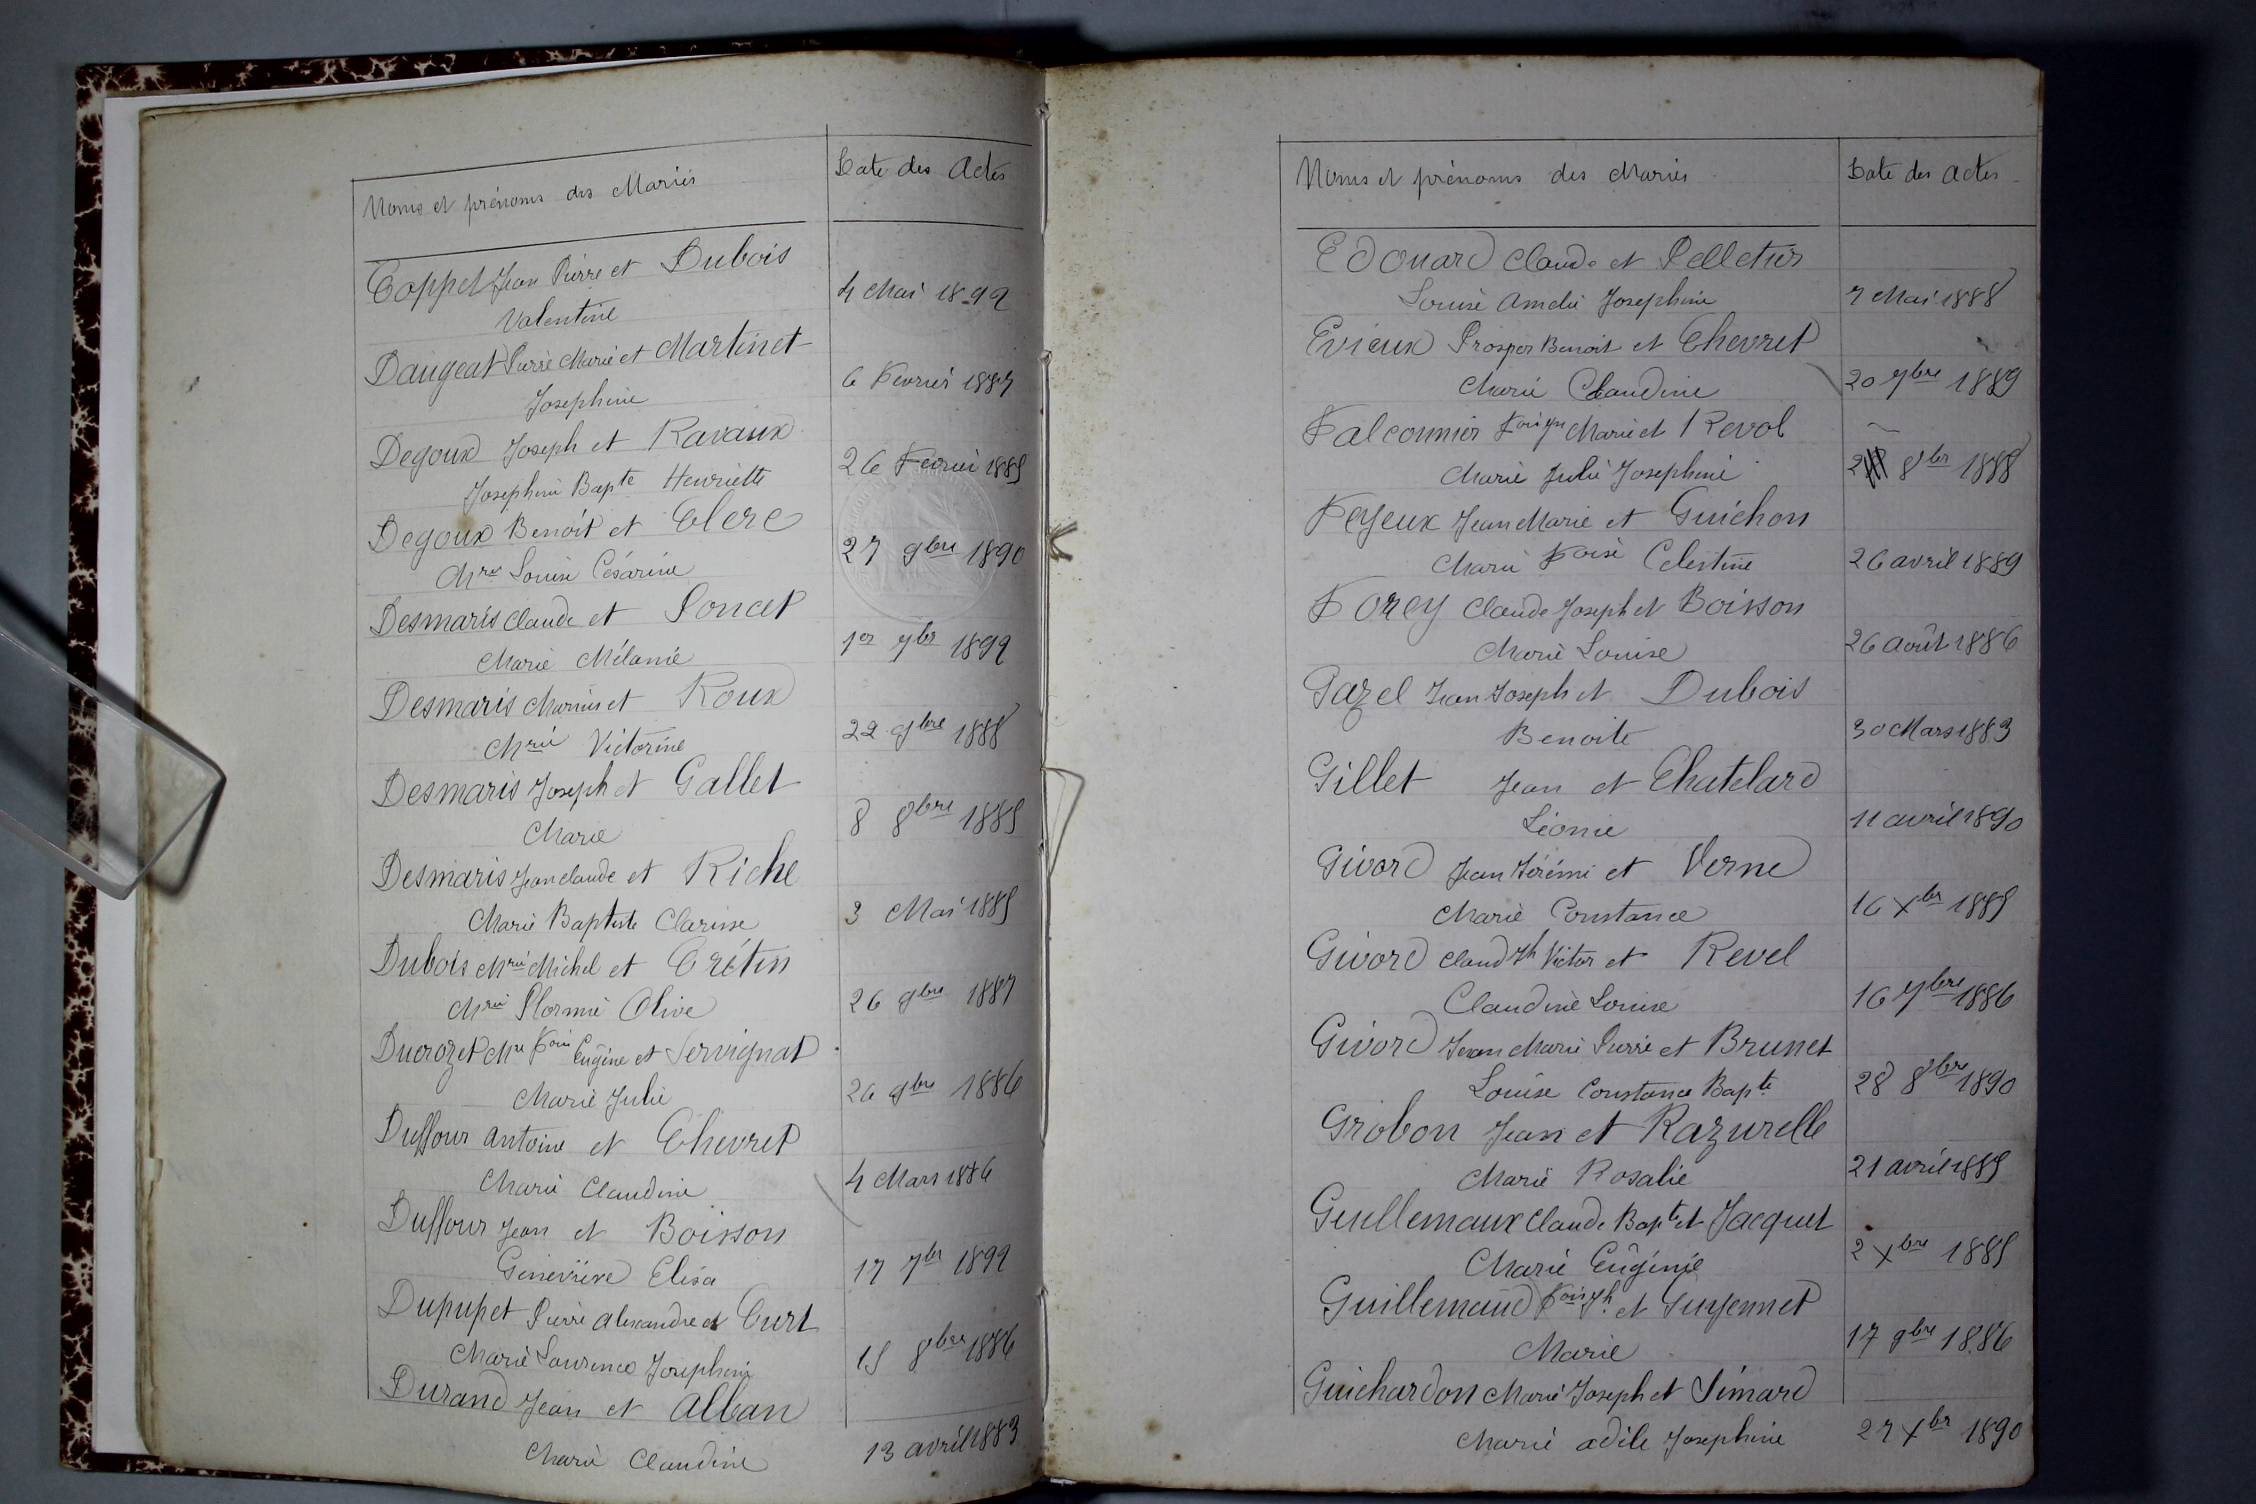 Noms et prénoms des Mariés
Date des Actes
Coppel Jean Pierre et Dubois
Valentine
4 Mai 1892
Daugeat Pierre Marie et Martinet
Josephine
6 Fevrier 1887
Degoux Joseph et Ravaux
Josephine Bapte Henriette
26 Fevrier 1885
Degoux Benoit et Clerc
Mrie Louise Césarine
27 9bre 1890
Desmaris Claude et Poncet
Marie Mélanie
1er 7bre 1892
Desmaris Marius et Roux
Mrie Victorine
22 9bre 1888
Desmaris Joseph et Gallet
Marie
8 8bre 1885
Desmaris Jean claude et Riche
Marie Baptiste Clarisse
3 Mai 1885
Dubois Mrie Michel et Crétin
Mrie Olive
26 9bre 1887
Ducrozet Mrie Fois Eugène et Servignat
Marie Julie
26 9bre 1886
Duffour Antoine et Chevret
Marie Claudine
4 Mars 1886
Duffour Jean et Boisson
Geneviève Elisa
17 7bre 1892
Dupupet Pierre Alexandre et Curt
Marie Laurence Josephine
15 8bre 1886
Durand Jean et Alban
Marie Claudine
13 avril 1883
Noms et prénoms des Mariés
Date des actes
Edouard Claude et Pelletier
Louise Amelie Josephine
7 Mai 1888
Evieux Prosper Benoit et Chevret
Marie Claudine
20 7bre 1889
Falconnier Marie et Revol
Marie Julie Josephine
8bre 1888
Feyeux Jean Marie et Guichon
Marie Foise Celestine
26 avril 1889
Forey Claude Joseph et Boisson
Marie Louise
26 août 1886
Gazel Jean Joseph et Dubois
Benoite
30 Mars 1883
Gillet Jean et Chatelard
Léonie
11 avril 1890
Givord Jean Jérémie et Verne
Marie Constance
16 Xbre 1885
Givord Claud Jh Victor et Revel
Claudine Louise
16 7bre 1886
Givord Jean Marie Pierre et Brunet
Louise Constance Bapte
28 8bre 1890
Grobon Jean et Razurelle
Marie Rosalie
21 avril 1885
Guillemaux Claude Bapte et Jacquet
Marie Eugénie
2 Xbre 1885
Guillemaud Fois Jh et Guyennet
Marie
17 9bre 1886
Guichardon Marie Joseph et Simard
Marie adèle Josephine
27 Xbre 1890